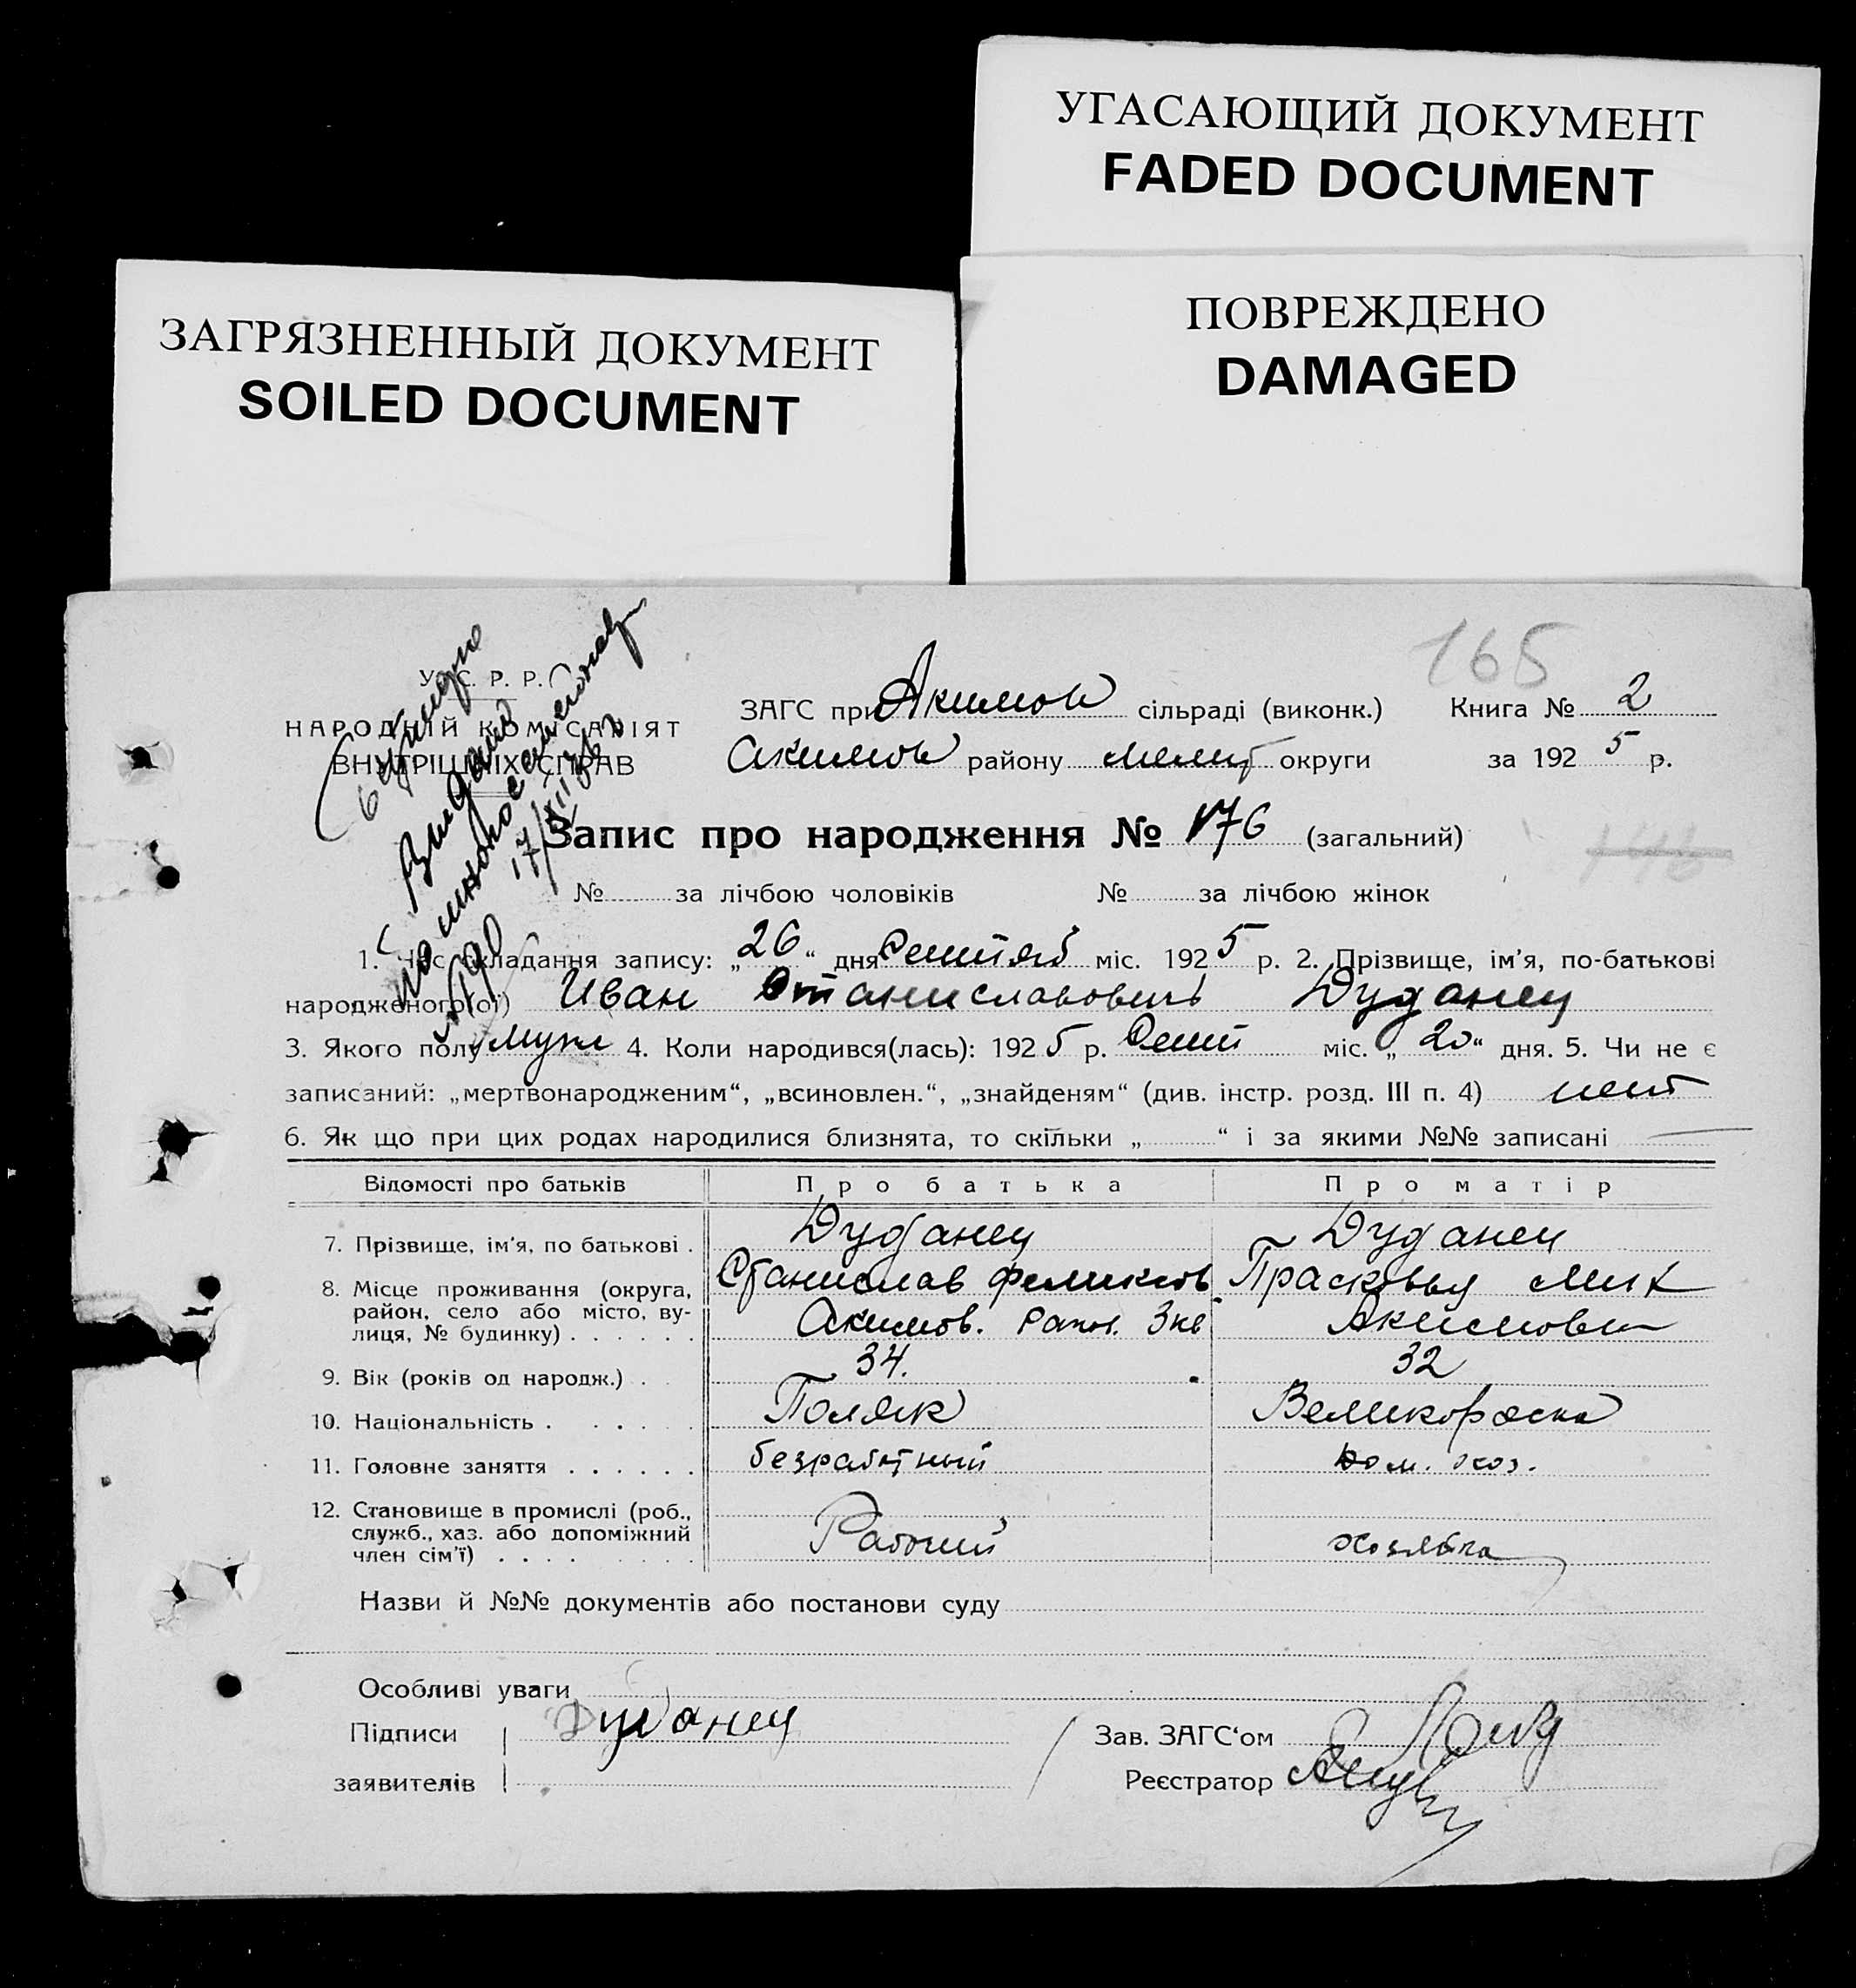 УГАСАЮЩИЙ ДОКУМЕНТ
FADED DOCUMENT
ЗАГРЯЗНЕННЫЙ ДОКУМЕНТ
SOILED DOCUMENT
ПОВРЕЖДЕНО
DAMAGED
165
У. С. Р. Р.
НАРОДНІЙ КОМІСАРІЯТ
ВНУТРІШНІХ СПРАВ
17/XII 36
ЗАГС при Акимов сільраді (виконк.) Книга № 2
Акимов району Мелит округи за 192 5 р.
Запис про народження № 176 (загальний)
№ за лічбою чоловіків № за лічбою жінок
1. Час складання запису: „ 26 “ дня Сентяб міс. 192 5 р. 2. Прізвище, ім'я, по-батькові
народженого(ої) Иван Станиславович Дуданец
3. Якого полу муж 4. Коли народився(лась): 192 5 р. Сент міс. „ 20 “ дня. 5. Чи не є
записаний: „мертвонародженим“, „всиновлен.“, „знайденям“ (див. інстр. розд. III п. 4) нет
6. Як що при цих родах народилися близнята, то скільки „ “ і за якими №№ записані —
Відомості про батьків Про батька Про матір
7. Прізвище, ім'я, по батькові . Дуданец Дуданец
Станислав Феликсов Прасковья Мих
8. Місце проживання (округа,
район, село або місто, ву-
лиця, № будинку) . . . . . . Акимов. 3 кв Акимовка
9. Вік (років од народж.) . 34. 32
10. Національність . . . . . Поляк Великоросска
11. Головне заняття . . . . . . безработный дом. хоз.
12. Становище в промислі (роб.,
служб., хаз. або допоміжний
член сім'ї) . . . . Рабочий хозяйка
Назви й №№ документів або постанови суду
Особливі уваги
Підписи Дуданец Зав. ЗАГС'ом
заявителів Реєстратор